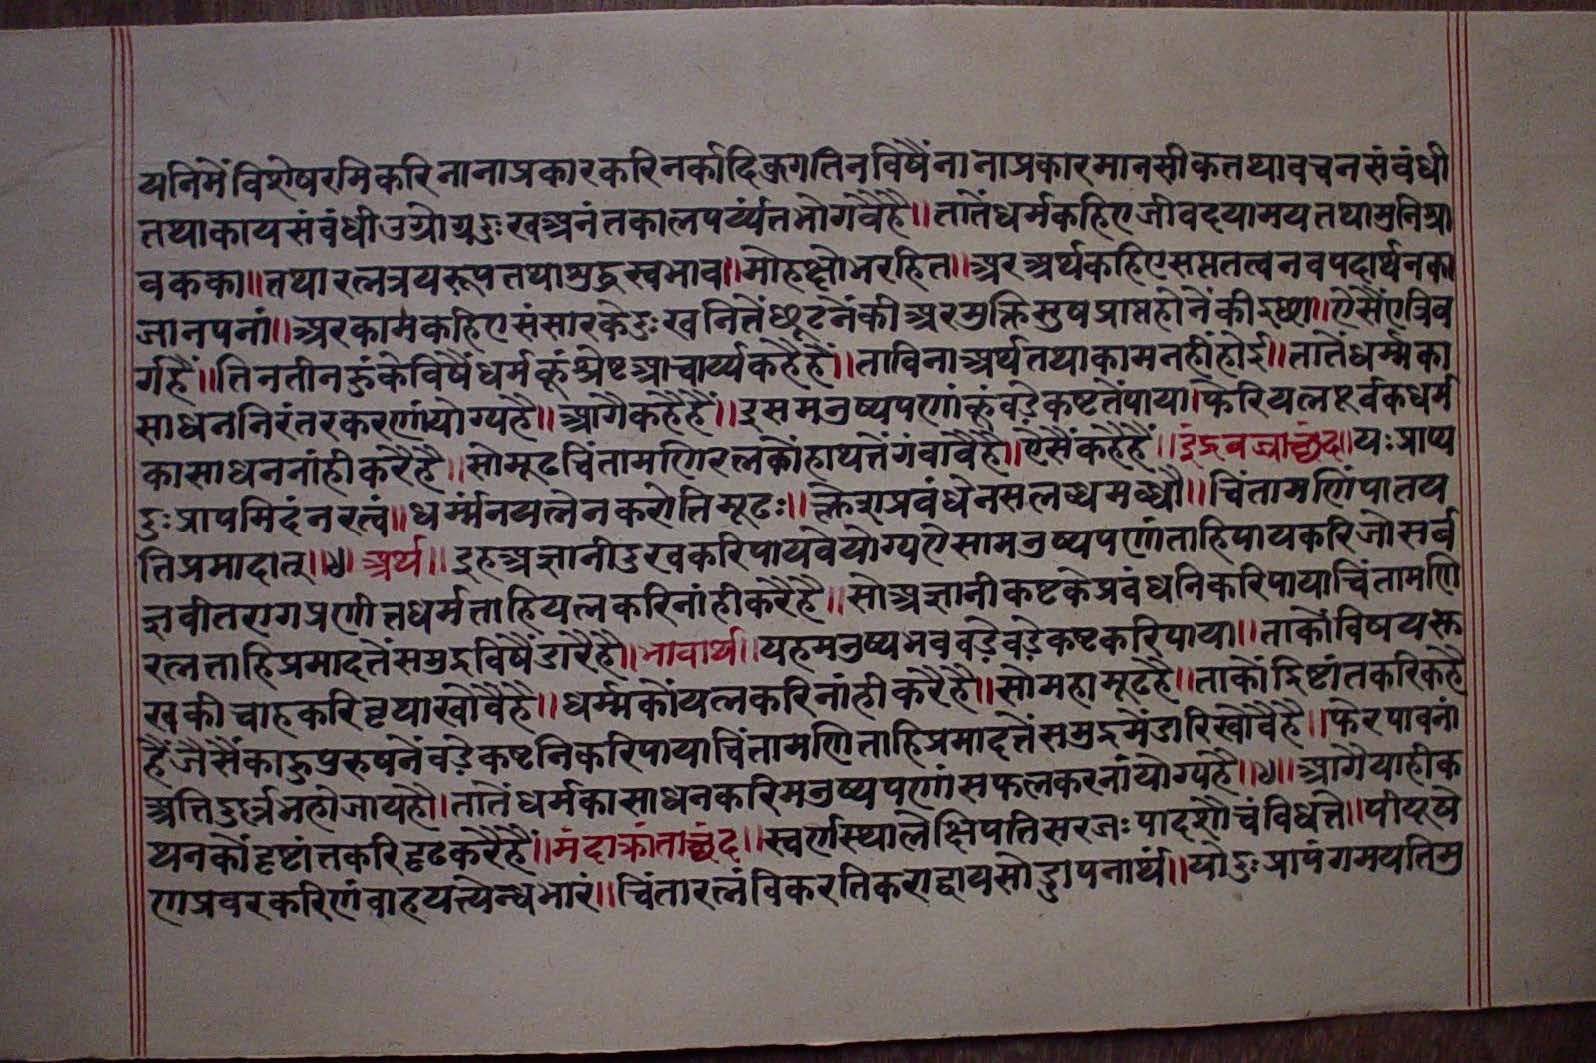 यनिमें विशेषरमिकरि नानाप्रकारकरि नर्कादिक्रगतिनविषैं नानाप्रकार मानसीक तथा वचनसंबंधी
तथा कायसंबंधी उग्रोग्र दुःख अनंतकालपर्य्यंत भोगवैहै॥ तातैं धर्म कहिए जीवदयामय तथा मुनिश्रा
वकका॥ तथा रत्नत्रयरूप तथा शुद्धस्वभाव॥ मोहक्षोभरहित॥ अर अर्थ कहिए सप्ततत्व नवपदार्थनका
जानपनां॥ अर काम कहिए संसारके दुःखनितैं छूटनैंकी अर मुक्तिसुष प्राप्त होनैंकी इछा॥ ऐसैं ए त्रिव
र्गहैं॥ तिन तीनकुंके विषैं धर्मकूं श्रेष्ट आचार्य्य कहैहैं॥ ता विना अर्थ तथा काम नहीं होई॥ तातैं धर्म्मका
साधन निरंतर करणां योग्यहै॥ आगै कहैहैं॥ इस मनुष्यपणांकूं वडे़ कष्टतैं पाया। फेरि यत्नपूर्वक धर्म
का साधन नांही करैहै॥ सो मूढ चिंतामणिरत्नकौं हाथतैं गंवावैहै॥ ऐसैं कहैहैं॥ इंद्रवज्राछंद॥ यः प्राप्य
दुःप्रापमिदं नरत्वं॥ धर्म्मं न यत्नेन करोति मूढः॥ क्लेशप्रबंधेन स लब्धमब्धौ॥ चिंतामणिं पातय
ति प्रमादात्॥४॥ अर्थ॥ इह अज्ञानी दुखकरि पायवे योग्य ऐसा मनुष्यपणां ताहि पायकरि जो सर्व
ज्ञ वीतराग प्रणीत धर्म ताहि यत्नकरि नांही करैहै॥ सो अज्ञानी कष्टके प्रवंधनिकरि पाया चिंतामणि
रत्न ताहि प्रमादतैं समुद्रविषैं डारैहै॥ भावार्थ॥ यह मनुष्यभव वडे़ वडे़ कष्टकरि पाया॥ ताकौं विषयसु
खकी चाहकरि वृथा खोवैहै॥ धर्म्मकौं यत्नकरि नांही करैहै॥ सो महामूढहै॥ ताकौं द्रिष्टांतकरि कहै
हैं जैसैं काहु पुरुषनैं वडे़ कष्टनिकरि पाया चिंतामणि ताहि प्रमादतैं समुद्रमें डारि खोवैहै॥ फेर पावनां
अति दुर्ल्लभ हो जायहै। तातैं धर्मका साधनकरि मनुष्यपणां सफल करनां योग्यहै॥४॥ आगै याही क
थनकौं दृष्टांतकरि दृढ करैहैं॥ मंदाक्रांताछंद॥ स्वर्णस्थाले क्षिपति स रजः पादशौचं विधत्ते॥ पीयूषे
ण प्रवरकरिणं वाहयत्येन्धभारं॥ चिंतारत्नं विकरति कराद्वायसोड्डापनार्थं॥ यो दुःप्रापं गमयति मु